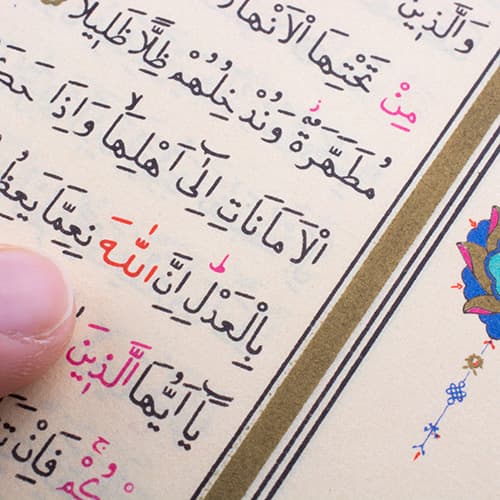 وَالَّذِينَ
مِنْ تَحْتِهَا الْاَنْهَا
مُطَهَّرَةٌ وَنُدْخِلُهُمْ ظِلًّا ظَلِيلًا
الْاَمَانَاتِ اِلٰٓى اَهْلِهَا وَاِذَا حَكَ
بِالْعَدْلِ اِنَّ اللّٰهَ نِعِمَّا يَعِظُ
يَآ اَيُّهَا الَّذِينَ
كُمْ فَاِنْ تَ